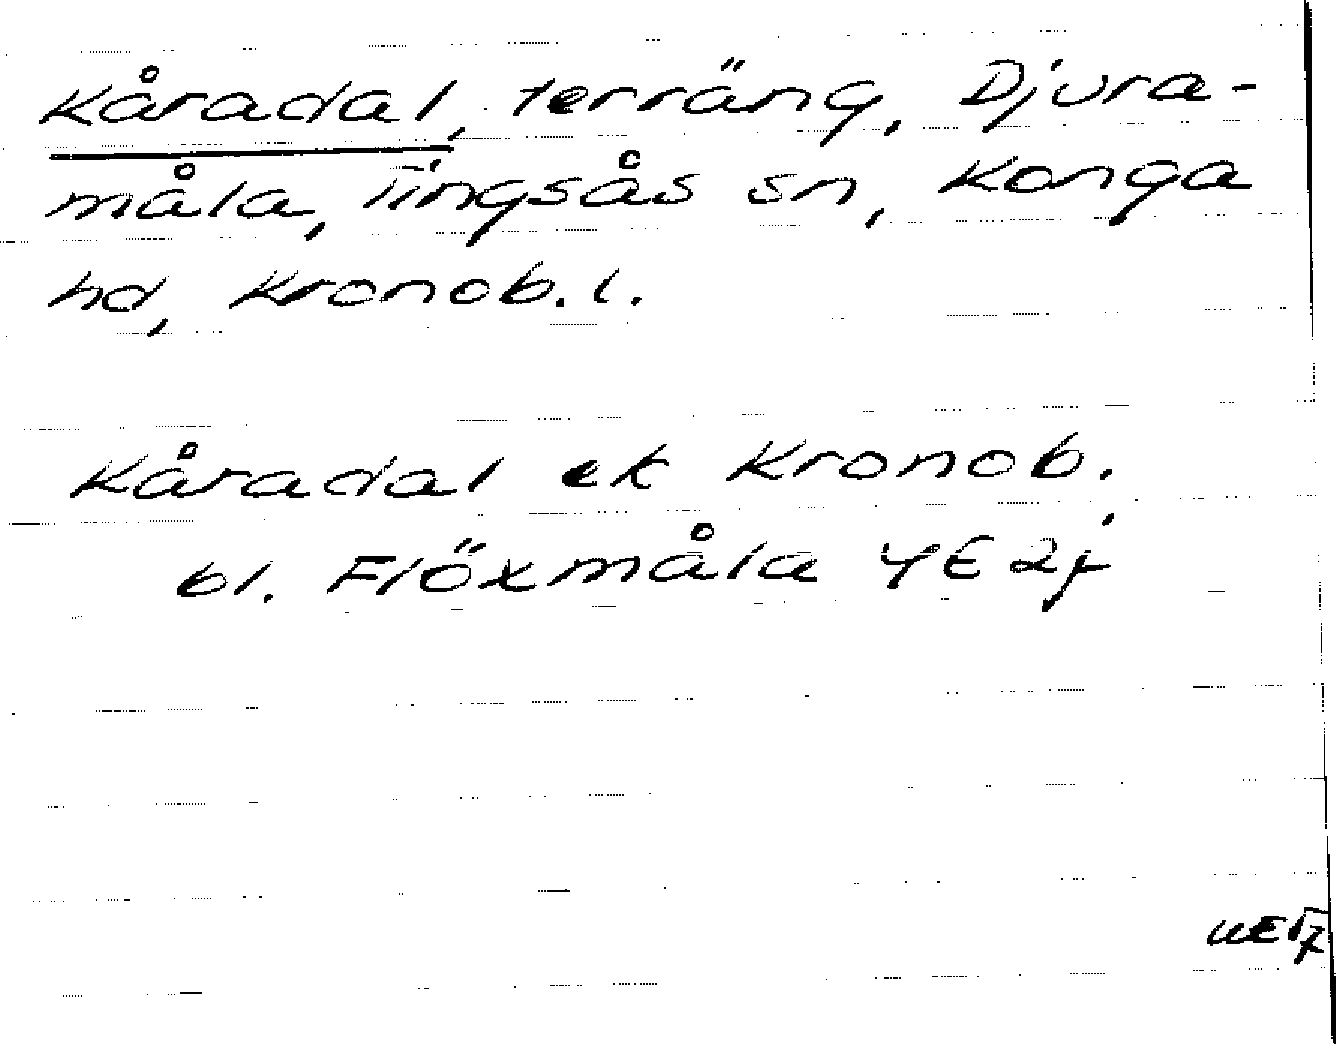 Kåradal, terräng, Djura-
måla, Tingsås sn, Konga
hd, Kronob. l.
Kåradal ek Kronob.
bl. Flöxmåla 4E2j